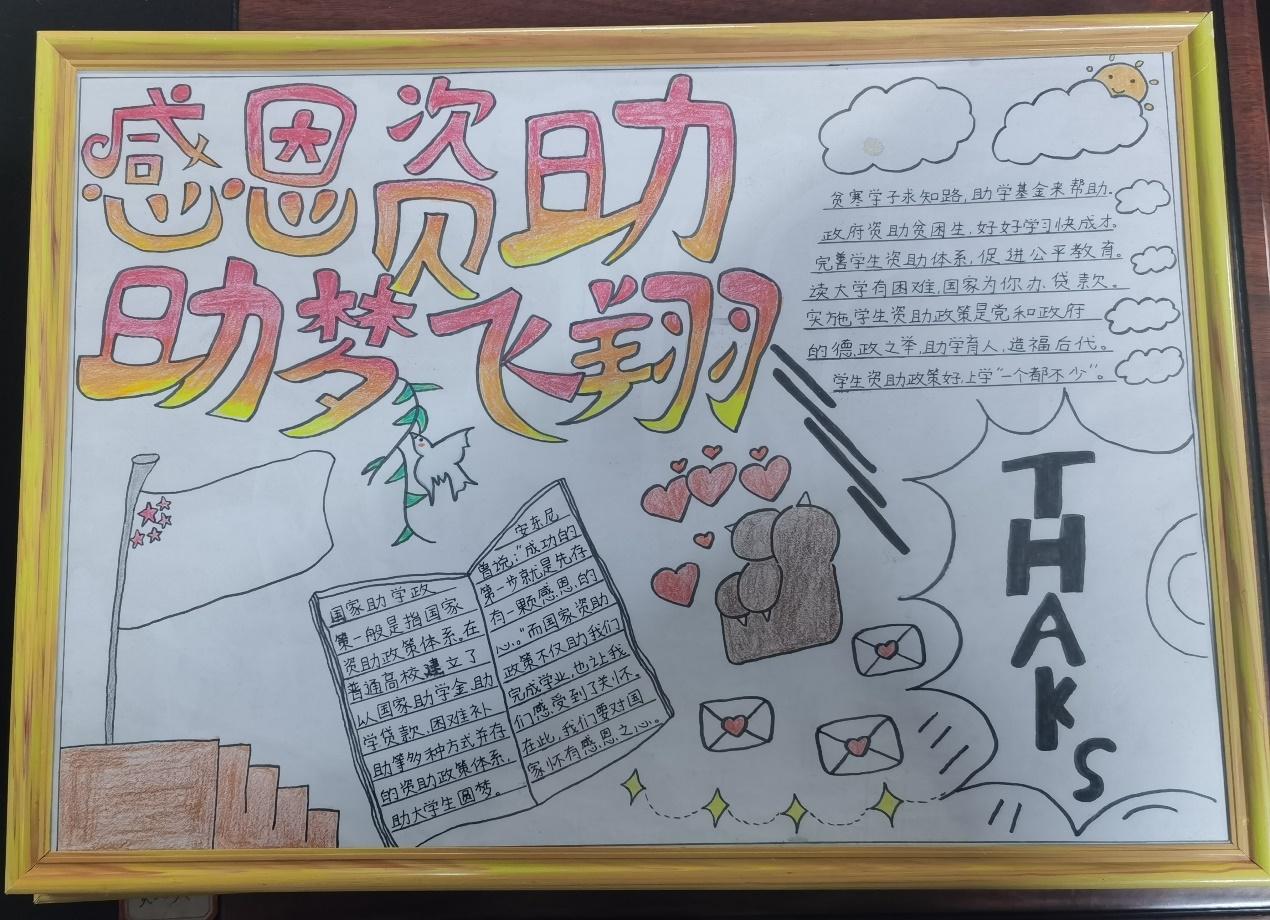 感恩资助
助梦飞翔
贫寒学子求知路,助学基金来帮助.
政府资助贫困生,好好学习快成才。
完善学生资助体系,促进公平教育。
读大学有困难,国家为你办贷款。
实施学生资助政策是党和政府
的德政之举,助学育人,造福后代。
学生资助政策好,上学“一个都不少”。
国家助学政
策一般是指国家
资助政策体系。在
普通高校建立了
以国家助学金,助
学贷款,困难补
助等多种方式并存
的资助政策体系,
助大学生圆梦。
安东尼
曾说:“成功的
第一步就是先存
有一颗感恩的
心。”而国家资助
政策不仅助我们
完成学业,也让我
们感受到了关怀。
在此,我们要对国
家怀有感恩之心。
THAKS